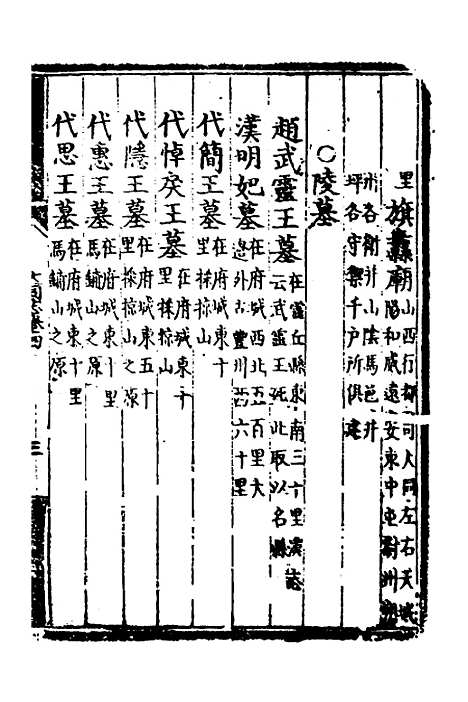 里旗纛廟山西行都司大同左右天城
陽和威遠安東中屯蔚州朔
州各衛并山陰馬邑井
坪各守禦千戶所俱建
○陵墓
趙武靈王墓在靈丘縣東南三十里漢誌
云武靈王死此取以名縣
漢明妃墓在府城西北五百里大
邉外古豐州西六十里
代簡王墓在府城東十
里採掠山
代悼戾王墓在府城東十
里採掠山
代隱王墓在府城東五十
里採掠山之原
代惠王墓在府城東十里
馬鋪山之原
代思王墓在府城東十里
馬鋪山之原